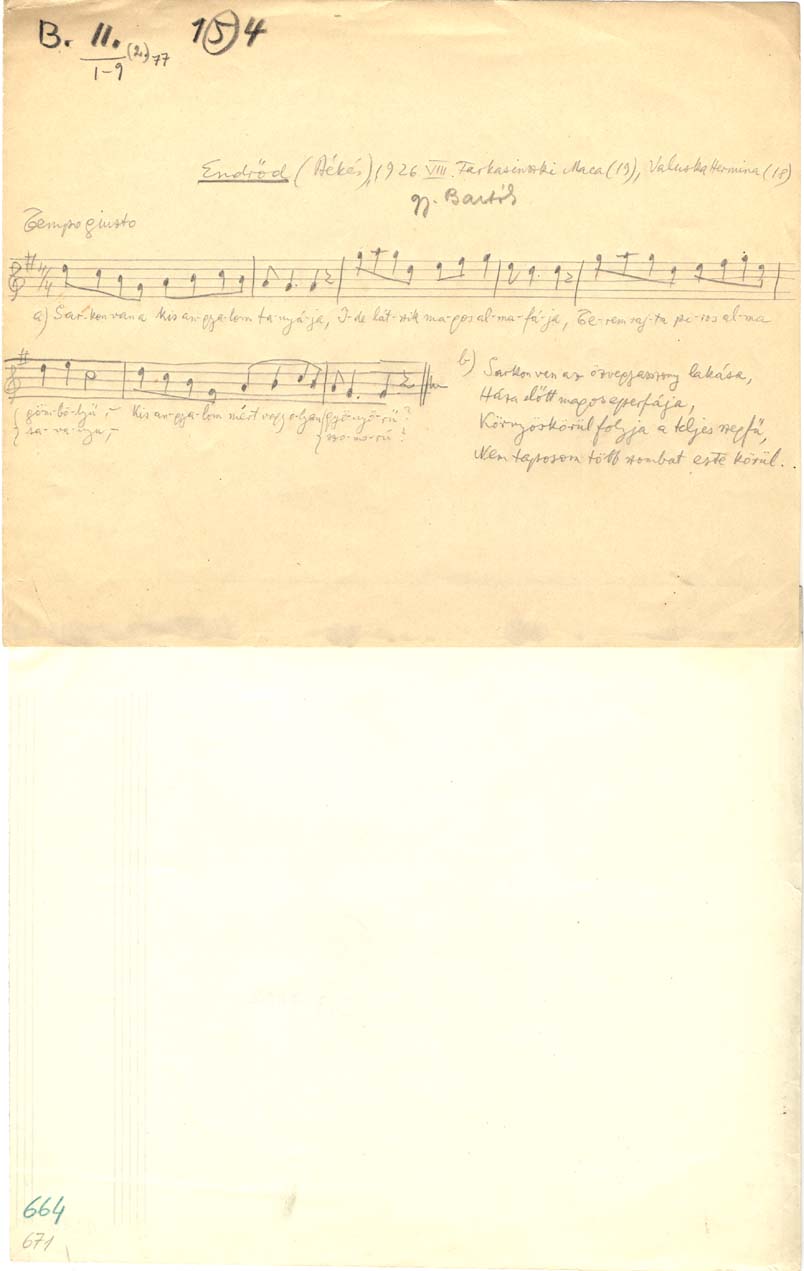 B. II. 1 5 4
1-9 (2) 77
Endrőd (Békés), 1926 VIII. Farkasinszki Maca (19), Valuska Hermina (18)
gy. Bartók
Tempo giusto
4/4
a) Sar-kon van a kis an-gya-lom ta-nyá-ja, I-de lát-szik ma-gos al-ma-fá-ja, Te-rem raj-ta pi-ros al-ma
göm-bö-lyű, - Kis an-gya-lom mért vagy olyan gyö-nyö-rű?
sa-va-nyu, - szo-mo-rú?
b) Sarkon van az özvegyasszony lakása,
Háza előtt magos eperfája,
Környöskörül folyja a teljes szegfű,
Nem taposom több szombat este körül.
664
671